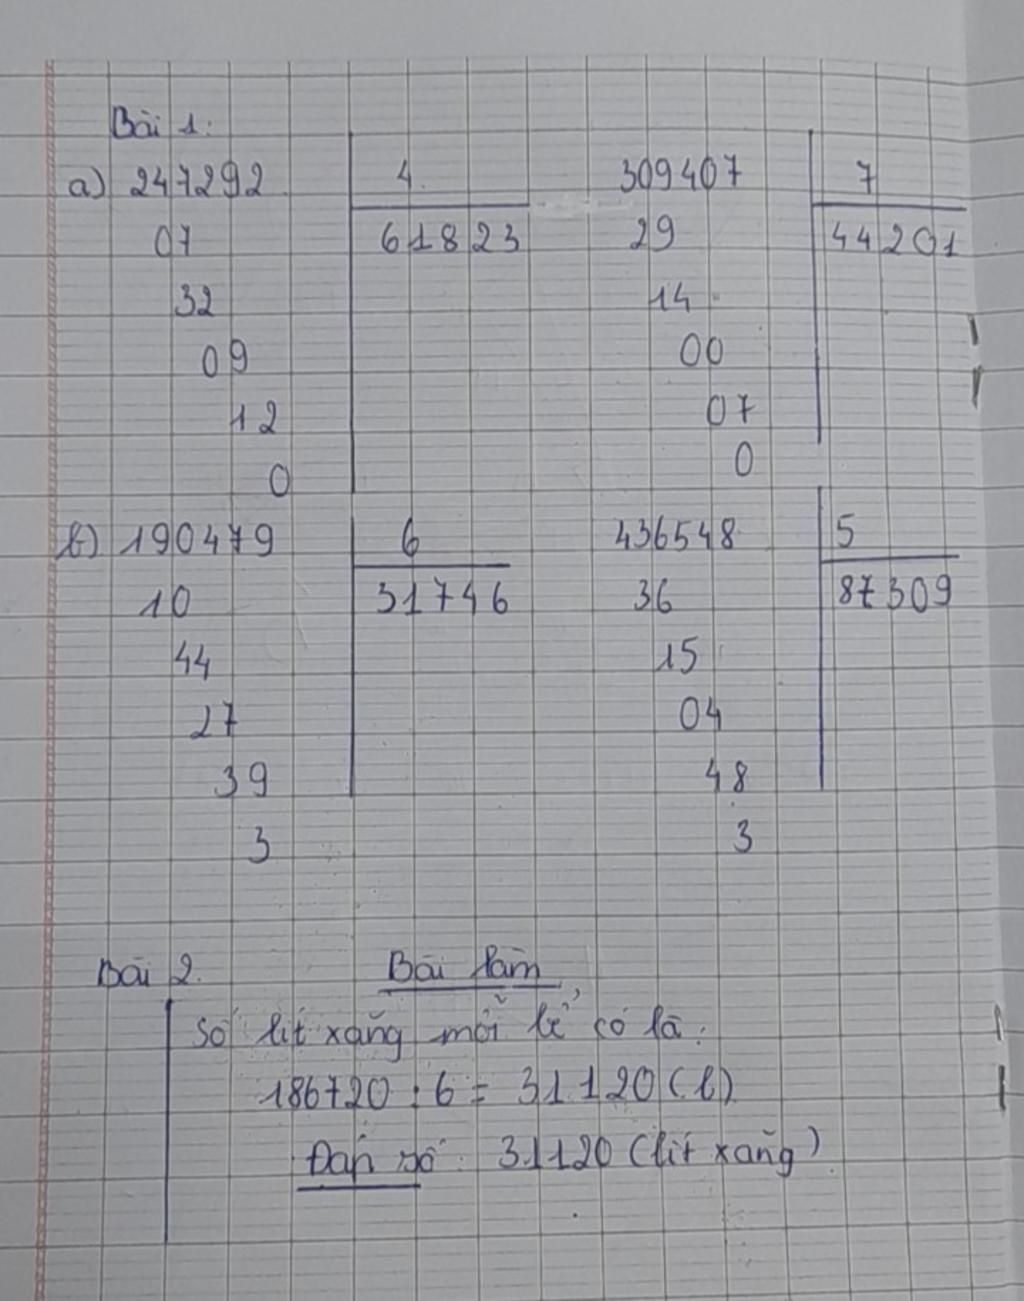 Bài 1:
a) 247292 4 309407 7
07 61823 29 44201
32 14
09 00
12 07
0 0
b) 190479 6 436548 5
10 31746 36 87309
44 15
27 04
39 48
3 3
Bài 2. Bài làm
Số lít xăng mỗi bể có là:
186720 : 6 = 31120 (l)
Đáp số: 31120 (lít xăng)